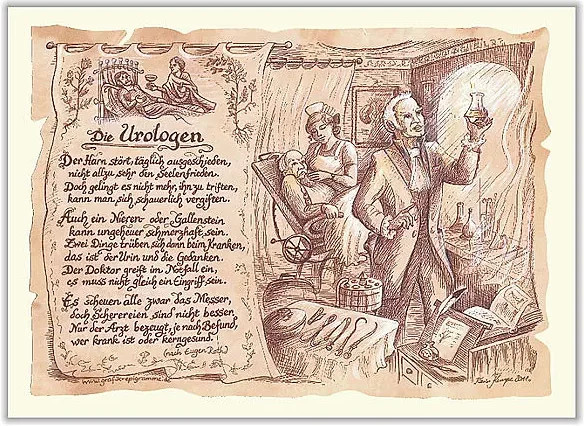 Die Urologen
Der Harn stört, täglich ausgeschieden,
nicht allzu sehr den Seelenfrieden.
Doch gelingt es nicht mehr, ihn zu triften,
kann man sich schauerlich vergiften.
Auch ein Nieren- oder Gallenstein
kann ungeheuer schmerzhaft sein.
Zwei Dinge trüben sich denn beim Kranken,
das ist der Urin und die Gedanken.
Der Doktor greift im Notfall ein,
es muss nicht gleich ein Eingriff sein.
Es scheuen alle zwar das Messer,
doch Scherereien sind nicht besser.
Nur der Arzt bezeugt, je nach Befund,
wer krank ist oder kerngesund!
(nach Eugen Roth)